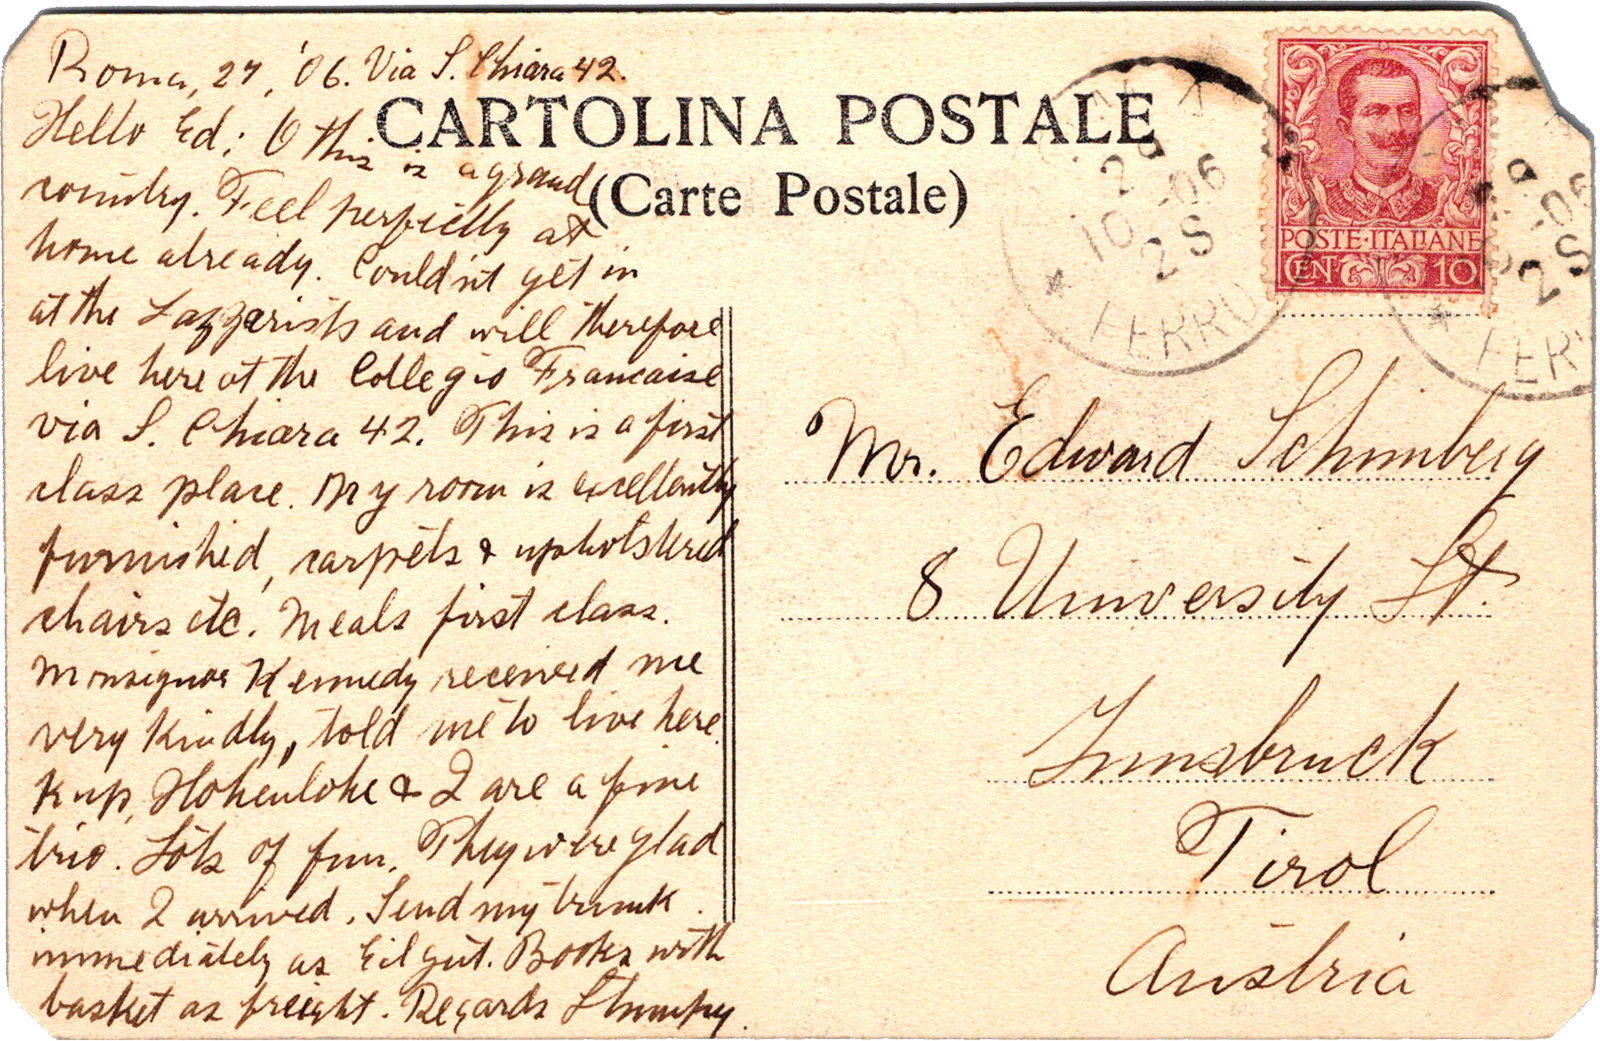 Roma, 27, '06. Via S. Chiara 42.
CARTOLINA POSTALE
(Carte Postale)
Hello Ed; O this is a grand
country. Feel perfectly at
home already. Couldn't get in
at the Lazzarists and will therefore
live here at the Collegio Francaise
via S. Chiara 42. This is a first
class place. My room is excellently
furnished, carpets & upholstered
chairs etc. Meals first class.
Monsignor Kennedy received me
very kindly, told me to live here.
Kup, Hohenlohe & I are a fine
trio. Lots of fun. They were glad
when I arrived. Send my trunk
immediately as Eilgut. Books with
basket as freight. Regards Stumpy.
POSTE·ITALIANE
CEN. 10
29
10 -06
2S
FERRO
9
-06
2S
FER
Mr. Edward Schimberg
8 University St.
Innsbruck
Tirol
Austria